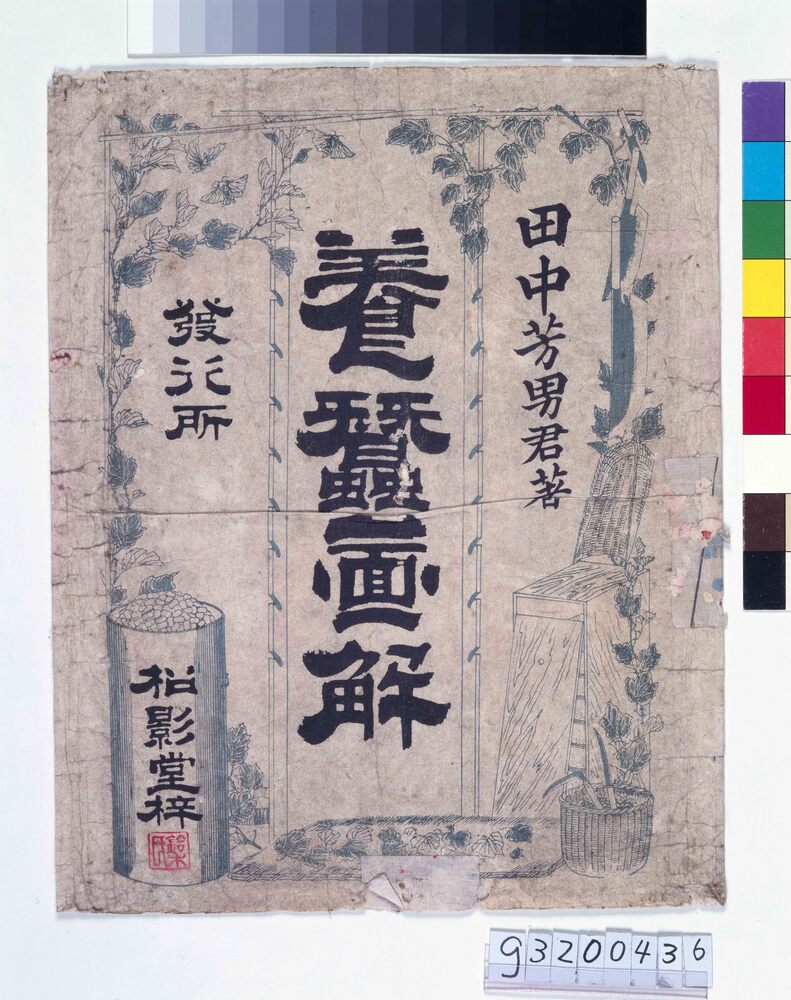 田中芳男君著
養蠶畫解
發行所
松影堂梓
93200436